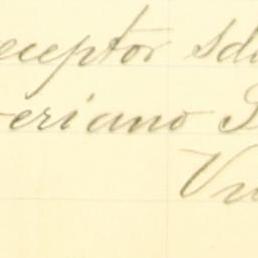 eceptor sd
eriano S
Vu